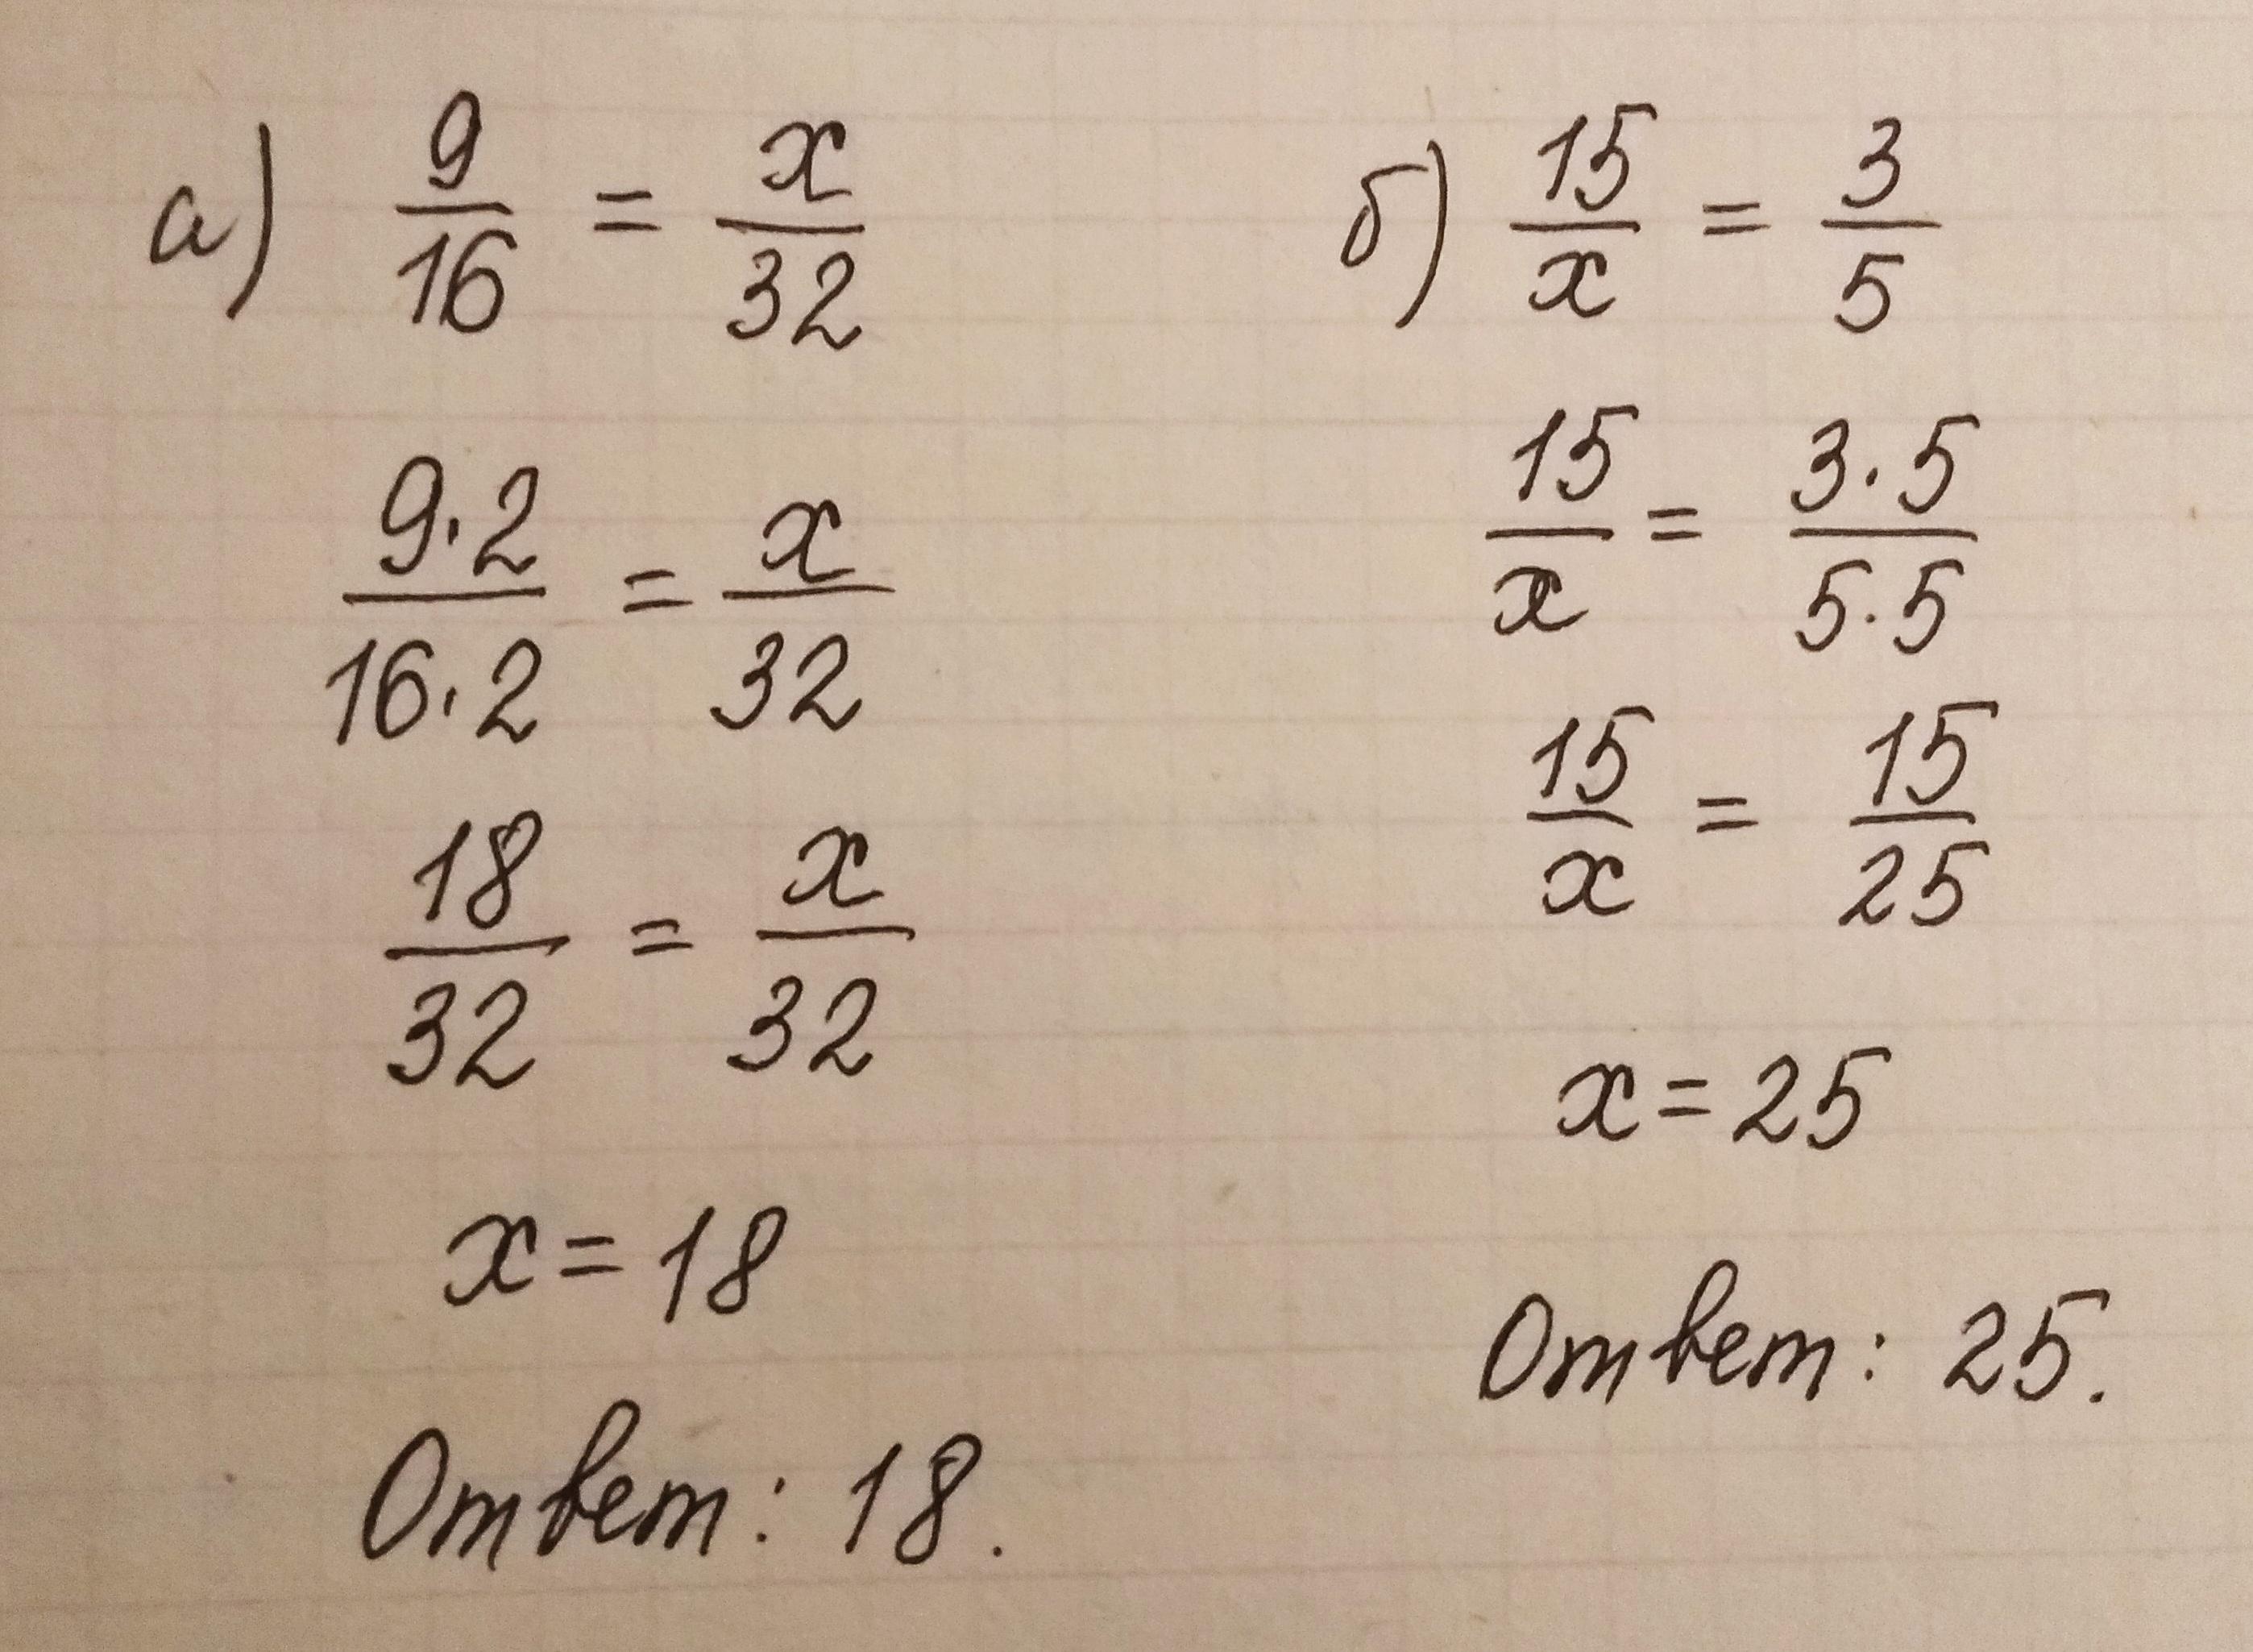 а) 9/16 = x/32
9·2/16·2 = x/32
18/32 = x/32
x = 18
Ответ: 18.
б) 15/x = 3/5
15/x = 3·5/5·5
15/x = 15/25
x = 25
Ответ: 25.